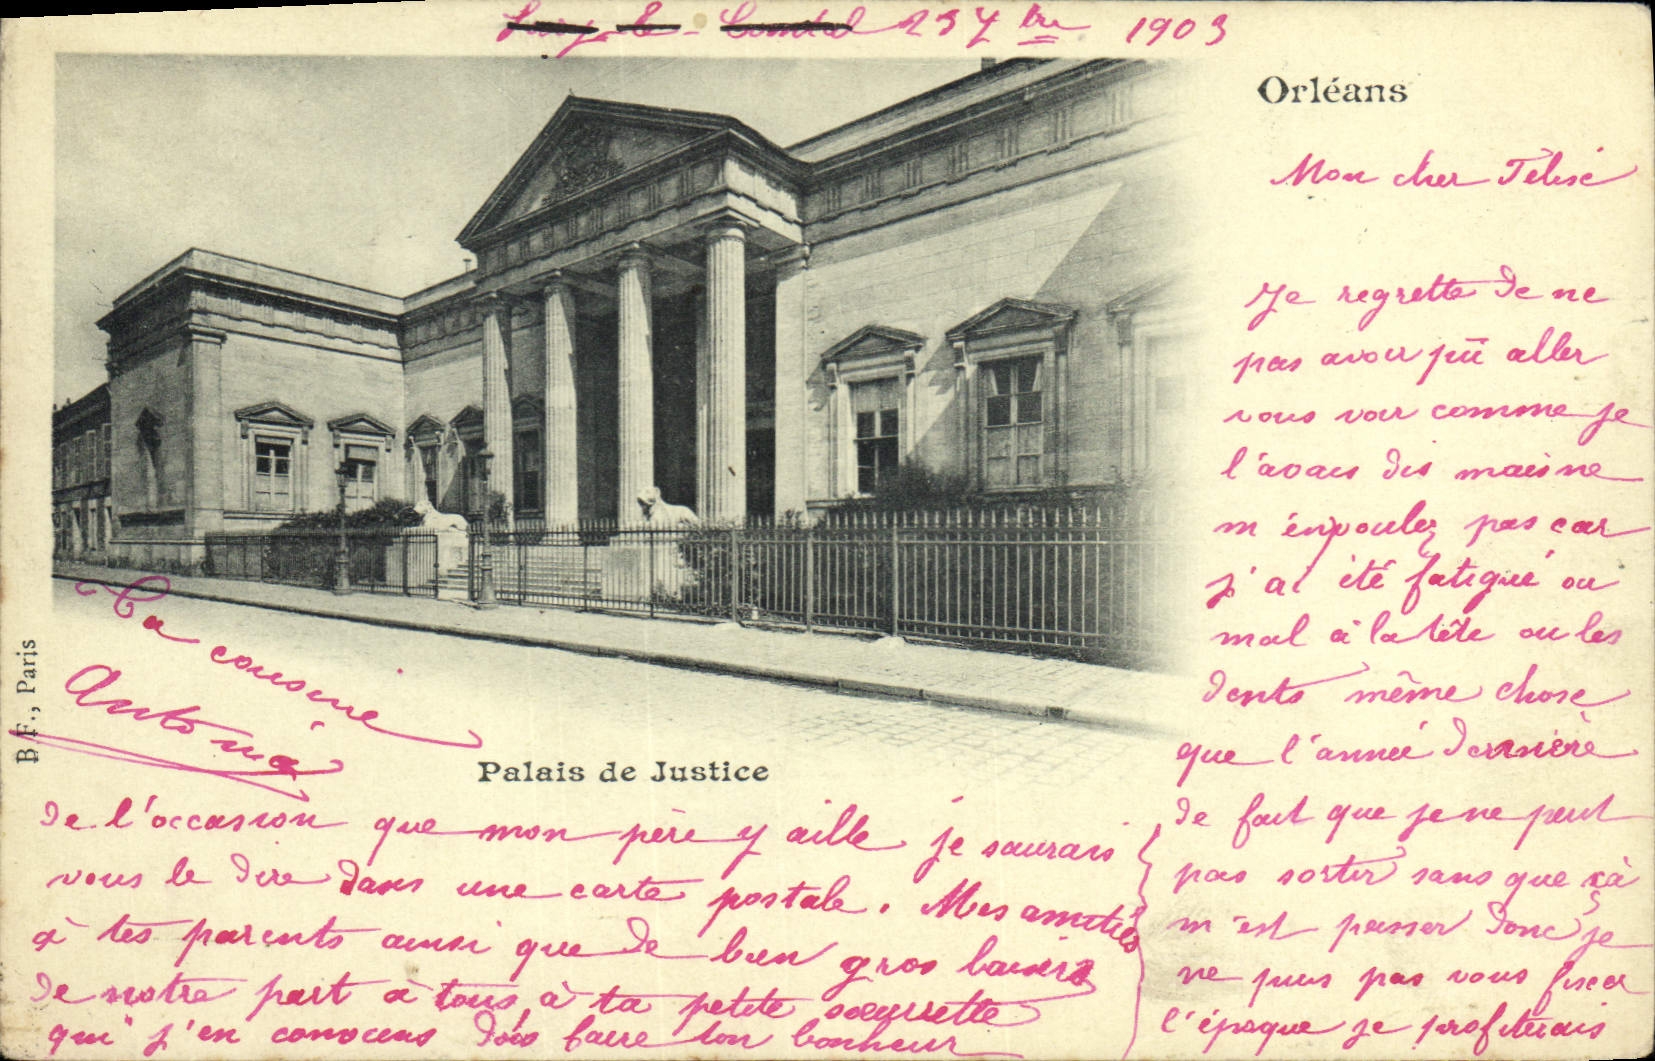 23 7bre 1903
Orléans
Mon cher Félix
Je regrette de ne
pas avoir pû aller
vous voir comme je
l'avais dis mais ne
m'en voulez pas car
j'ai été fatigué ou
mal à la tête ou les
dents même chose
que l'anneé dernière
de fait que je ne peut
pas sortir sans que çà
m'est passer donc je
ne puis pas vous fixer
l'époque je profiterais
de l'occasion que mon père y aille je saurais
vous le dire dans une carte postale. Mes amitiés
à tes parents ainsi que de bien gros baisers
de notre part à tous, à ta petite sœurette
qui j'en connais dois faire ton bonheur
Ta cousine
Antonia
Palais de Justice
B F., Paris